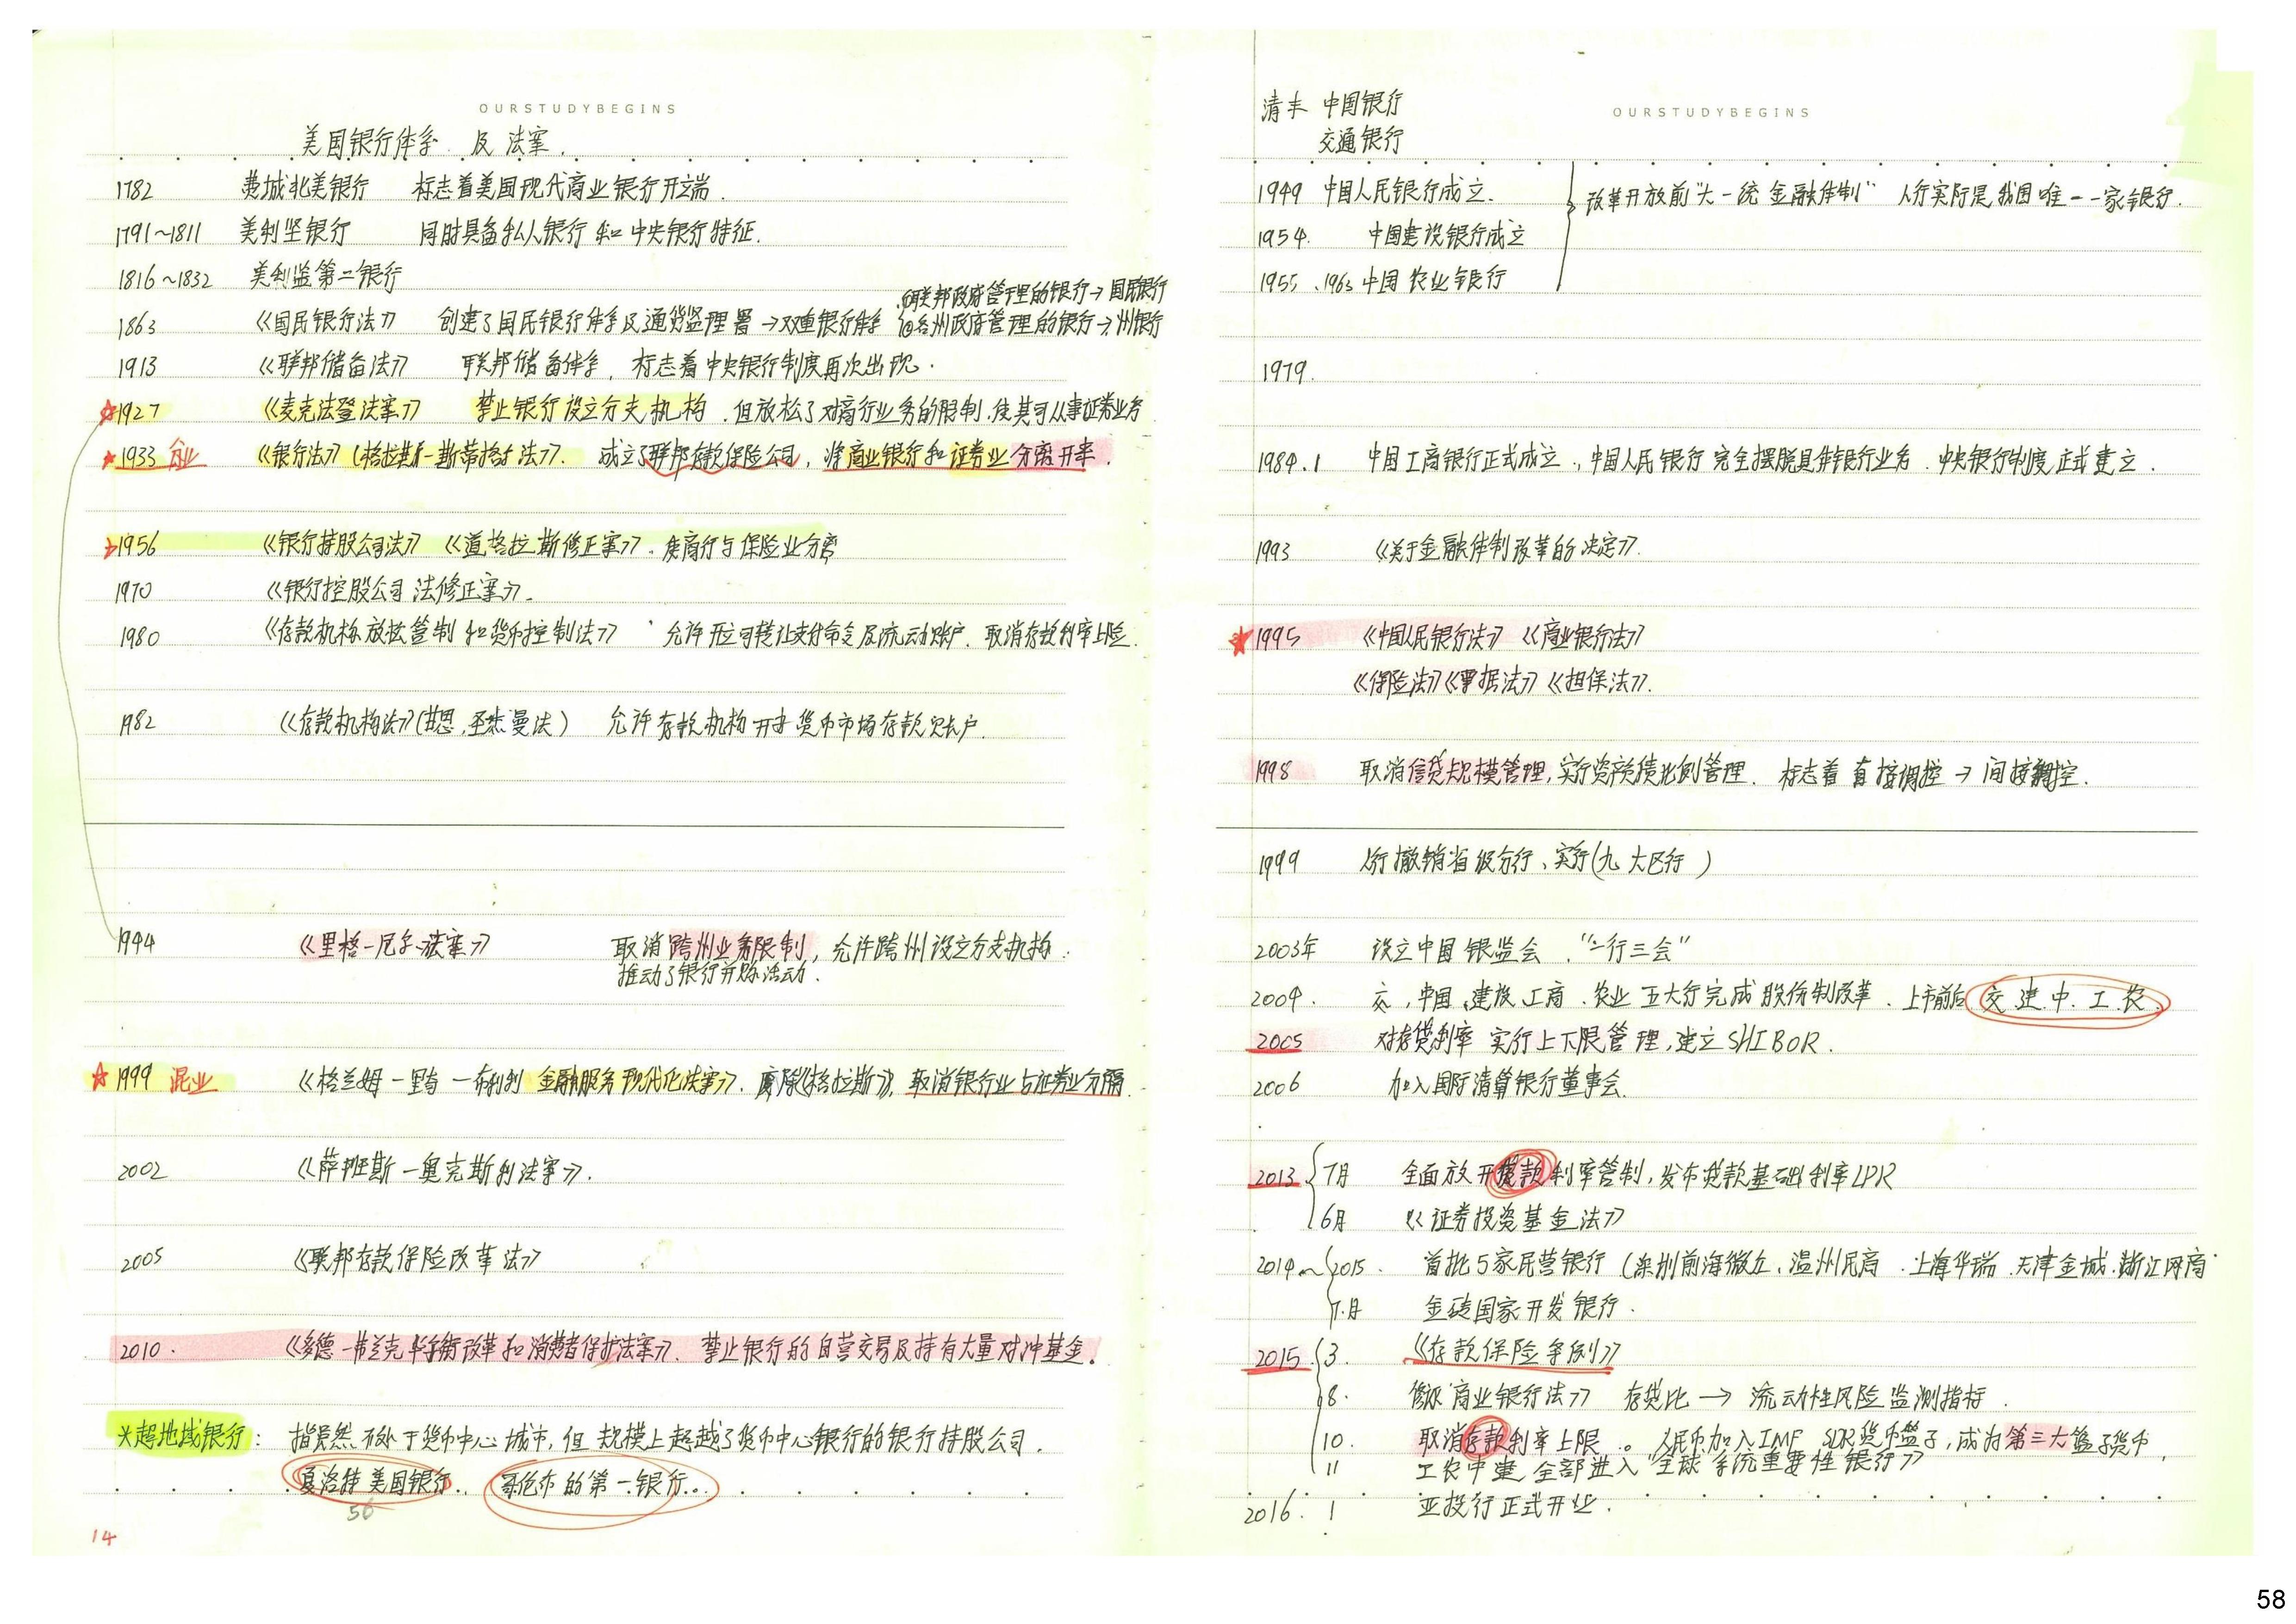 OURSTUDYBEGINS
美国银行体系 及 法案.
1782 费城北美银行 标志着美国现代商业银行开端.
1791~1811 美利坚银行 同时具备私人银行和中央银行特征.
1816~1832 美利监第二银行
①联邦政府管理的银行→国民银行
1863 《国民银行法》 创建了国民银行体系及通货监理署→双重银行体系 ②各州政府管理的银行→州银行
1913 《联邦储备法》 联邦储备体系, 标志着中央银行制度再次出现.
☆1927 《麦克法登法案》 禁止银行设立分支机构.但放松了对商行业务的限制.使其可从事证券业务
★1933 分业 《银行法》(格拉斯-斯蒂格尔法》. 成立了联邦存款保险公司, 将商业银行和证券业分离开来.
1956 《银行持股公司法》《道格拉斯修正案》. 使商行与保险业分离
1970 《银行控股公司法修正案》.
1980 《存款机构放松管制和货币控制法》 允许开立可转让支付命令及流动账户. 取消存款利率上限.
1982 《存款机构法》(甘恩.圣杰曼法) 允许存款机构开办货币市场存款账户.
1994 《里格-尼尔法案》 取消跨州业务限制, 允许跨州设立分支机构.
推动了银行并购活动.
☆1999 混业 《格兰姆-里奇-布利利 金融服务现代化法案》. 废除《格拉斯》, 取消银行业与证券业分隔.
2002 《萨班斯-奥克斯利法案》.
2005 《联邦存款保险改革法》
2010. 《多德-弗兰克华尔街改革和消费者保护法案》. 禁止银行的自营交易及持有大量对冲基金.
*超地域银行: 指虽然不处于货币中心城市, 但规模上超越了货币中心银行的银行持股公司.
夏洛特美国银行.. 哥伦布的第一银行...
56
14
OURSTUDYBEGINS
清末 中国银行
交通银行
1949 中国人民银行成立. 改革开放前"大一统金融体制" 人行实际是我国唯一一家银行.
1954. 中国建设银行成立
1955、1963 中国农业银行
1979.
1984.1 中国工商银行正式成立., 中国人民银行完全摆脱具体银行业务. 中央银行制度正式建立.
1993 《关于金融体制改革的决定》.
★1995 《中国人民银行法》《商业银行法》
《保险法》《票据法》《担保法》.
1998 取消信贷规模管理, 实行资产负债比例管理. 标志着 直接调控→间接调控.
1999 人行撤销省级分行、实行(九大区行)
2003年 设立中国银监会. "一行三会"
2004. 交,中国、建设、工商.农业 五大行完成股份制改革. 上市前后 交.建.中.工.农.
2005 对存贷利率 实行上下限管理, 建立SHIBOR.
2006 加入国际清算银行董事会.
2013 7月 全面放开贷款利率管制, 发布贷款基础利率LPR
6月 《证券投资基金法》
2014~2015. 首批5家民营银行 (深圳前海微众、温州民商.上海华瑞.天津金城.浙江网商
7.月 金砖国家开发银行.
2015 3. 《存款保险条例》
8. 修改商业银行法》 存贷比→流动性风险监测指标.
10. 取消存款利率上限。人民币加入IMF SDR货币篮子, 成为第三大篮子货币.
11 工农中建 全部进入"全球系统重要性银行》
2016. 1 亚投行正式开业.
58